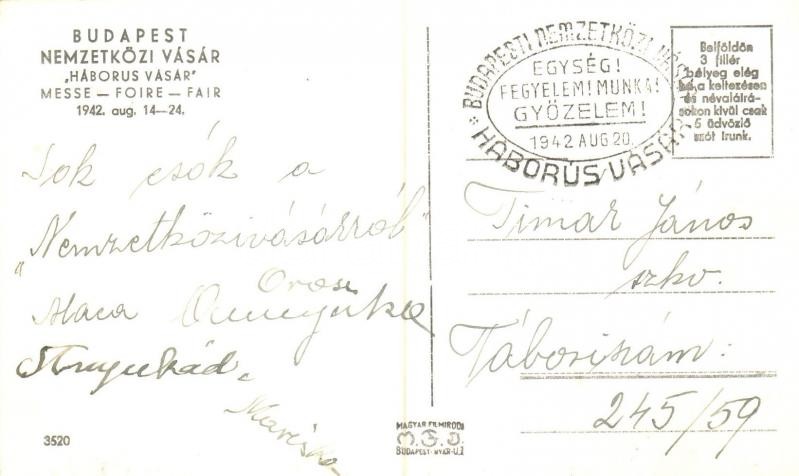 BUDAPEST
NEMZETKÖZI VÁSÁR
„HÁBORUS VÁSÁR"
MESSE — FOIRE — FAIR
1942. aug. 14—24.
BUDAPESTI NEMZETKÖZI VÁSÁR
EGYSÉG!
FEGYELEM! MUNKA!
GYŐZELEM!
1942 AUG 20
HÁBORÚS VÁSÁR
Belföldön
3 fillér
bélyeg elég
ha a keltezésen
és névaláírá-
sokon kivül csak
5 üdvözlő
szót irunk.
Sok csók a
"Nemzetközivásárról"
Maca
Anyukád.
Mariska
Timár János
szkv.
Tábori szám:
245/59
3520
MAGYAR FILMIRODA
BUDAPEST